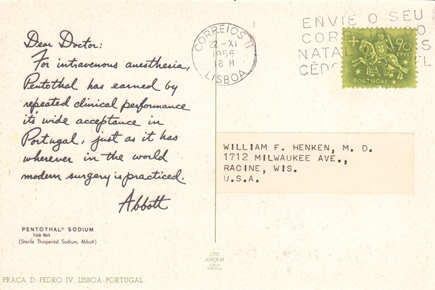 Dear Doctor:
For intravenous anesthesia,
Pentothal has earned by
repeated clinical performance
its wide acceptance in
Portugal, just as it has
wherever in the world
modern surgery is practiced.
Abbott
PENTOTHAL® SODIUM
Trade Mark
(Sterile Thiopental Sodium, Abbott)
PRAÇA D. PEDRO IV, LISBOA-PORTUGAL
CORREIOS
22-XI
1956
18 H
LISBOA
ENVIE O SEU
NATAL
PORTUGAL
WILLIAM F. HENKEN, M. D.
1712 MILWAUKEE AVE.,
RACINE, WIS.
U.S.A.